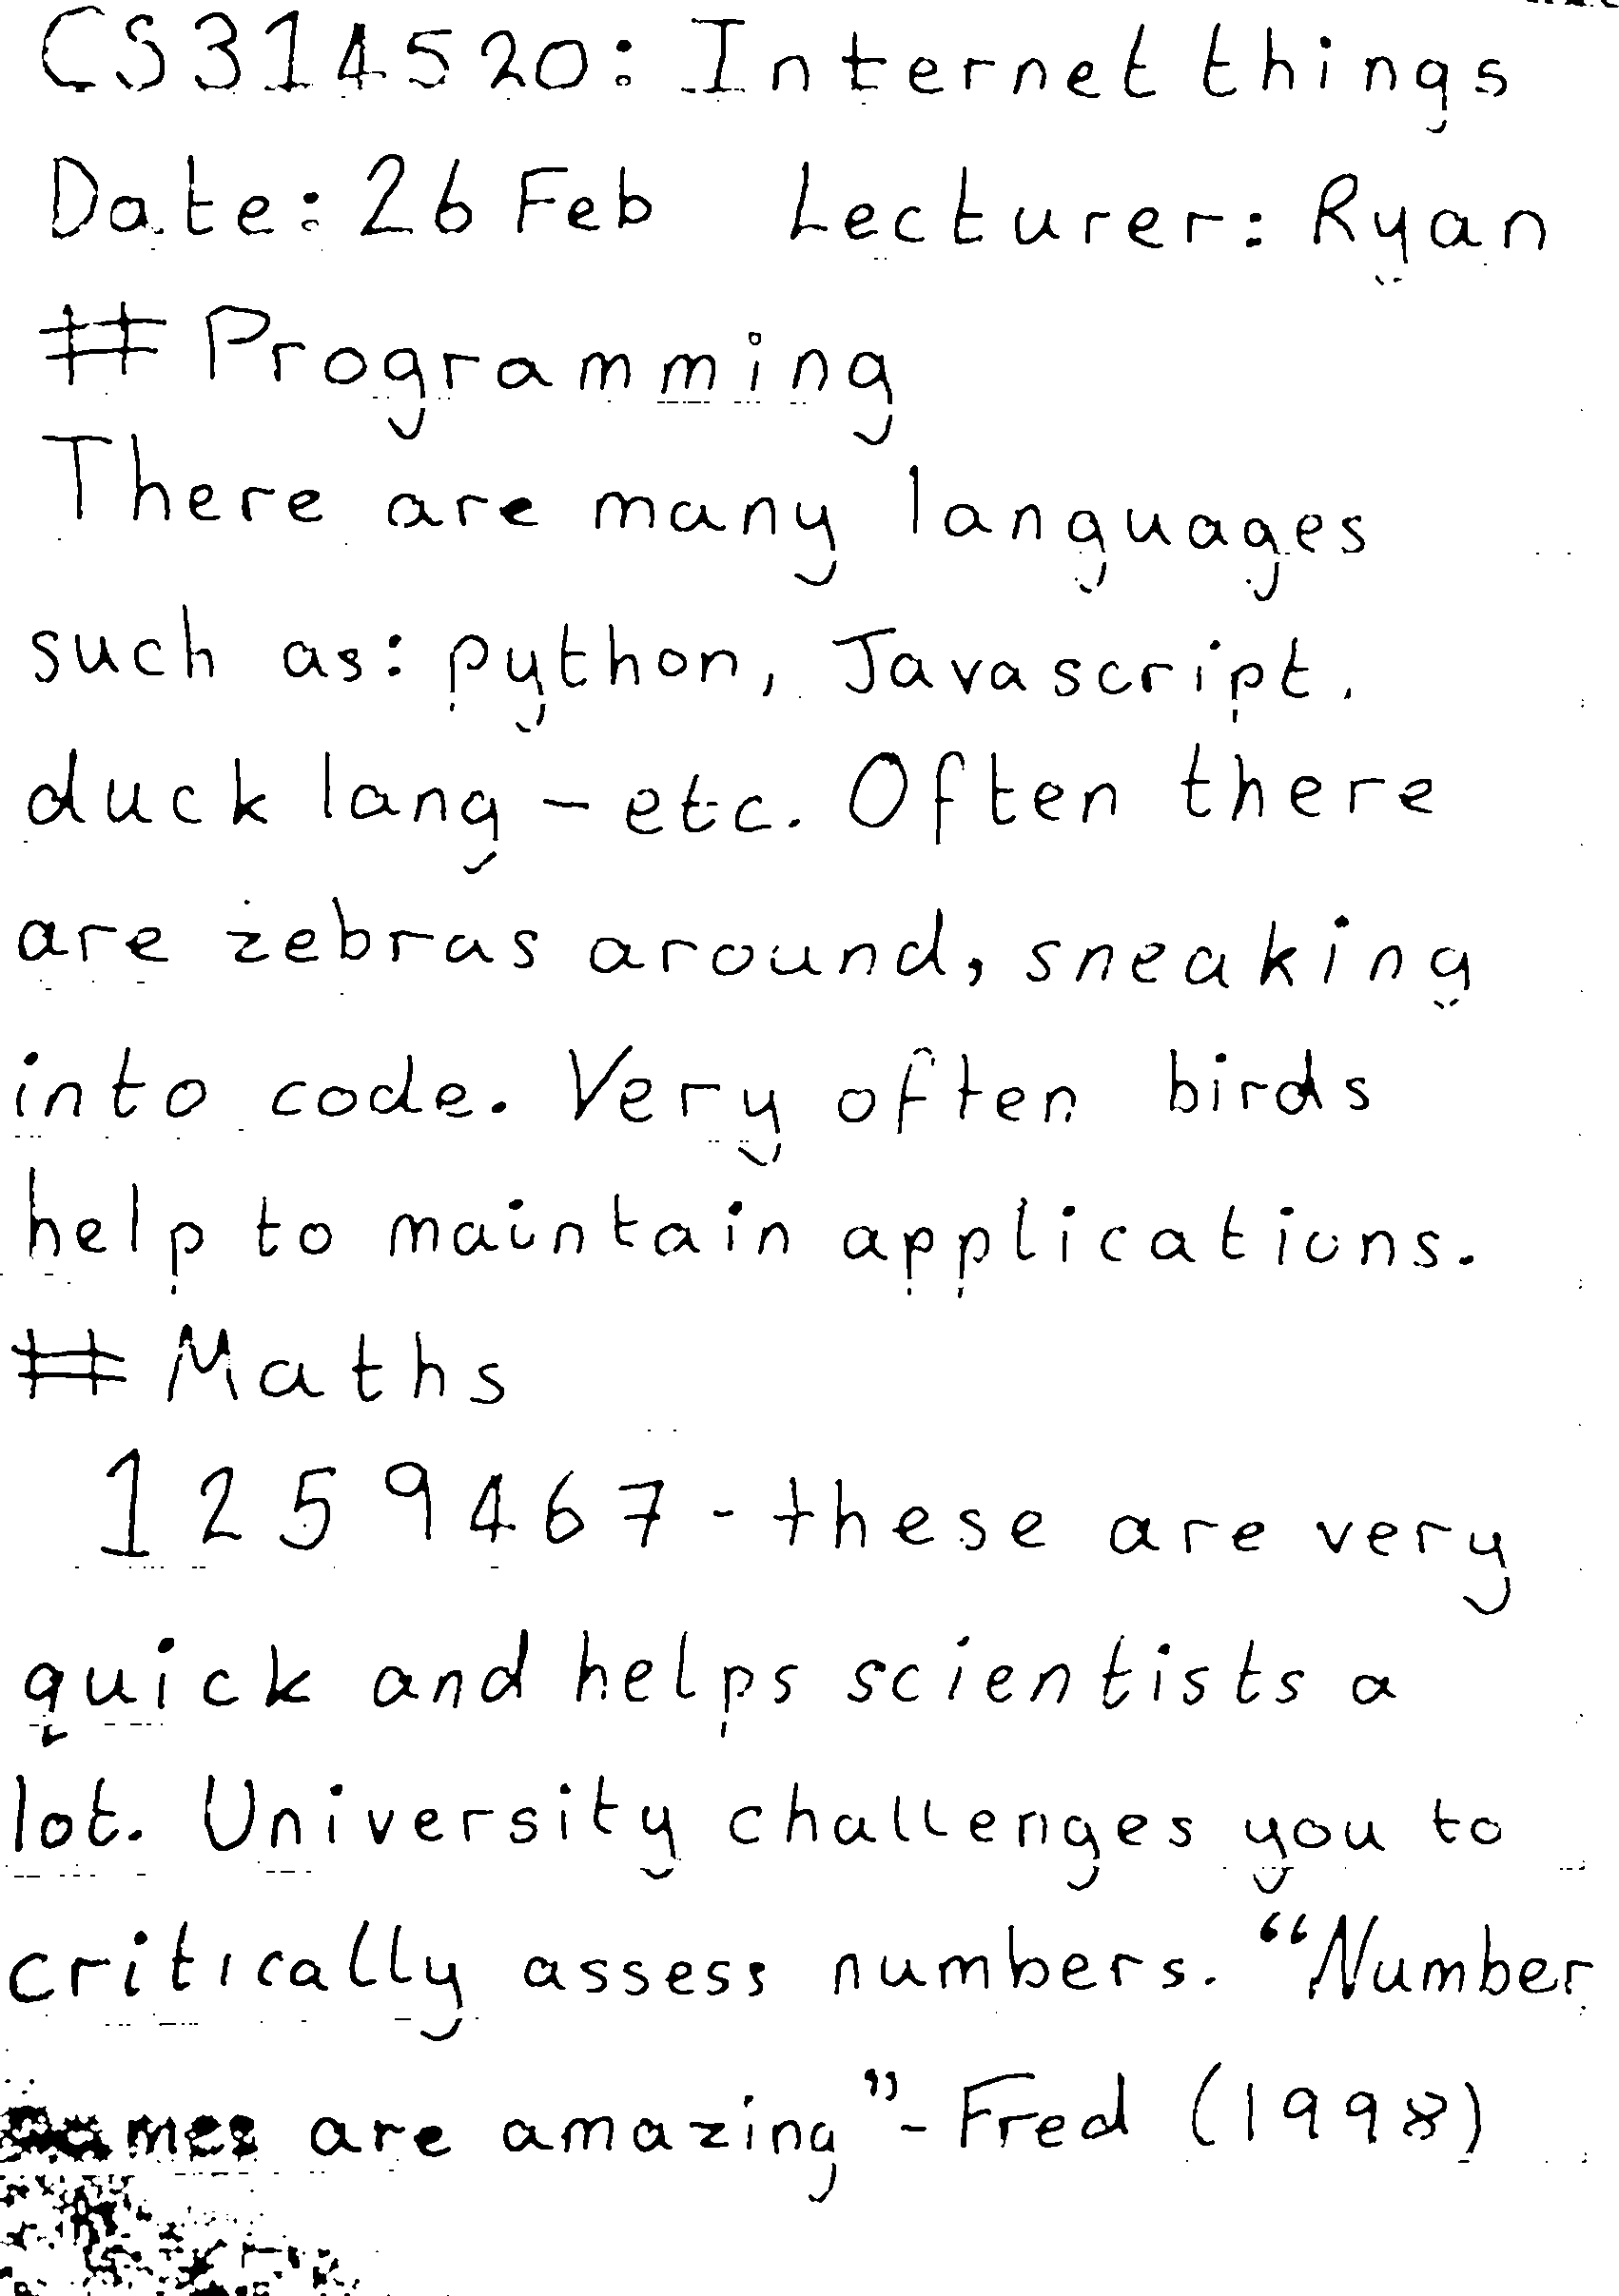 CS314520: Internet things
Date: 26 Feb Lecturer: Ryan
# Programming
There are many languages
such as: python, Javascript.
duck lang - etc. Often there
are zebras around, sneaking
into code. Very often birds
help to maintain applications.
# Maths
1259467 - these are very
quick and helps scientists a
lot. University challenges you to
critically assess numbers. “Number
games are amazing” - Fred (1998)